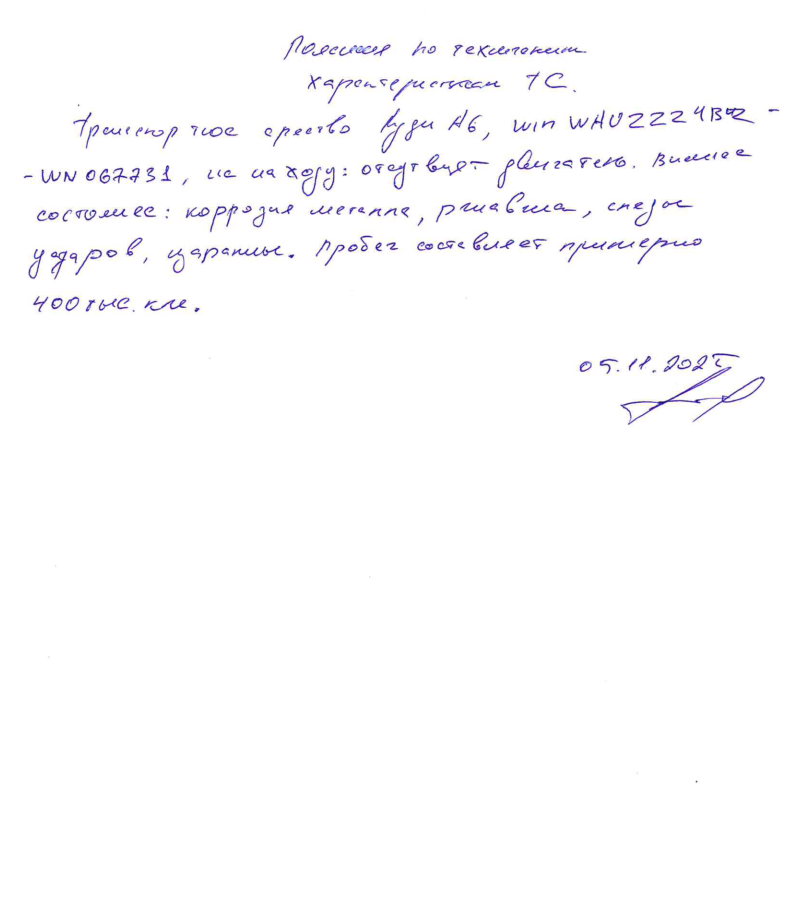 Пояснения по техническим
характеристикам ТС.
Транспортное средство Ауди А6, win WAUZZZ4BZ-
-WN067731, не на ходу: отсутствует двигатель. Внешнее
состояние: коррозия металла, ржавчина, следы
ударов, царапины. Пробег составляет примерно
400 тыс. км.
05.11.2025